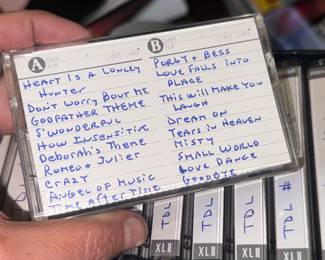 A
HEART IS A LONELY
HUNTER
DON'T WORRY BOUT ME
GODFATHER THEME
S'WONDERFUL
HOW INSENSITIVE
DEBORAH'S THEME
ROMEO & JULIET
CRAZY
ANGEL OF MUSIC
TIME AFTER TIME
B
PORGY + BESS
LOVE FALLS INTO
PLACE
THIS WILL MAKE YOU
LAUGH
DREAM ON
TEARS IN HEAVEN
MISTY
SMALL WORLD
LOVE DANCE
GOODBYE
TDL
TDL
TDL
TDL #
XLII
XLII
XLII
XLII